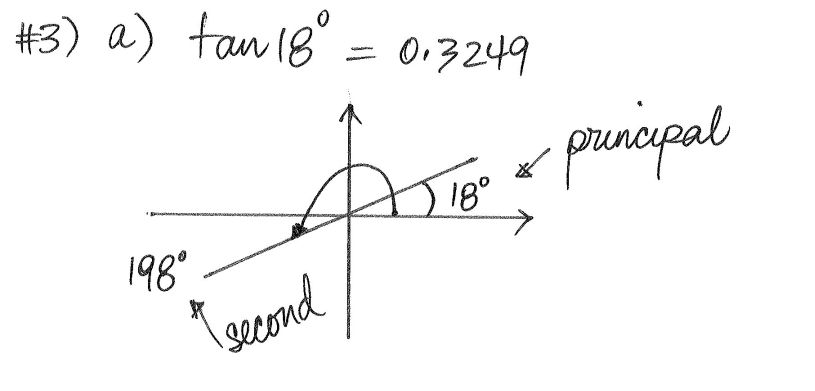 #3) a) tan 18° = 0.3249
principal
18°
198°
second